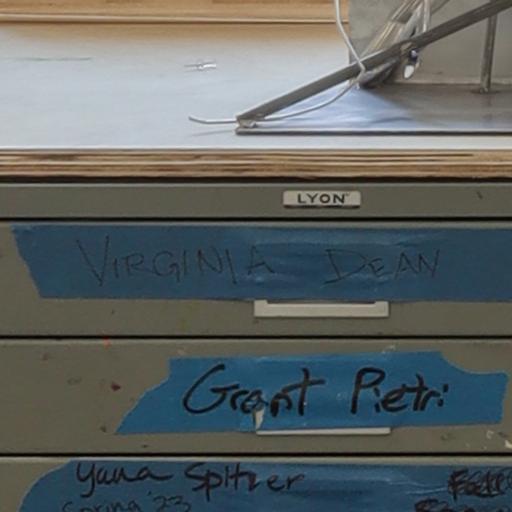 LYON
VIRGINIA DEAN
Grant Pietri
Yana Spitzer
Spring '23